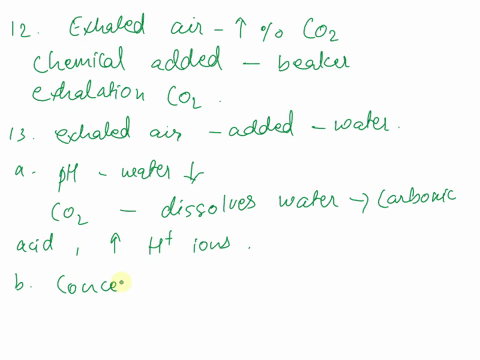 12. Exhaled air - ↑ % CO₂
Chemical added - beaker
exhalation CO₂.
13. exhaled air - added - water.
a. pH - water ↓
CO₂ - dissolves water → Carbonic
acid, ↑ H⁺ ions.
b. Conce